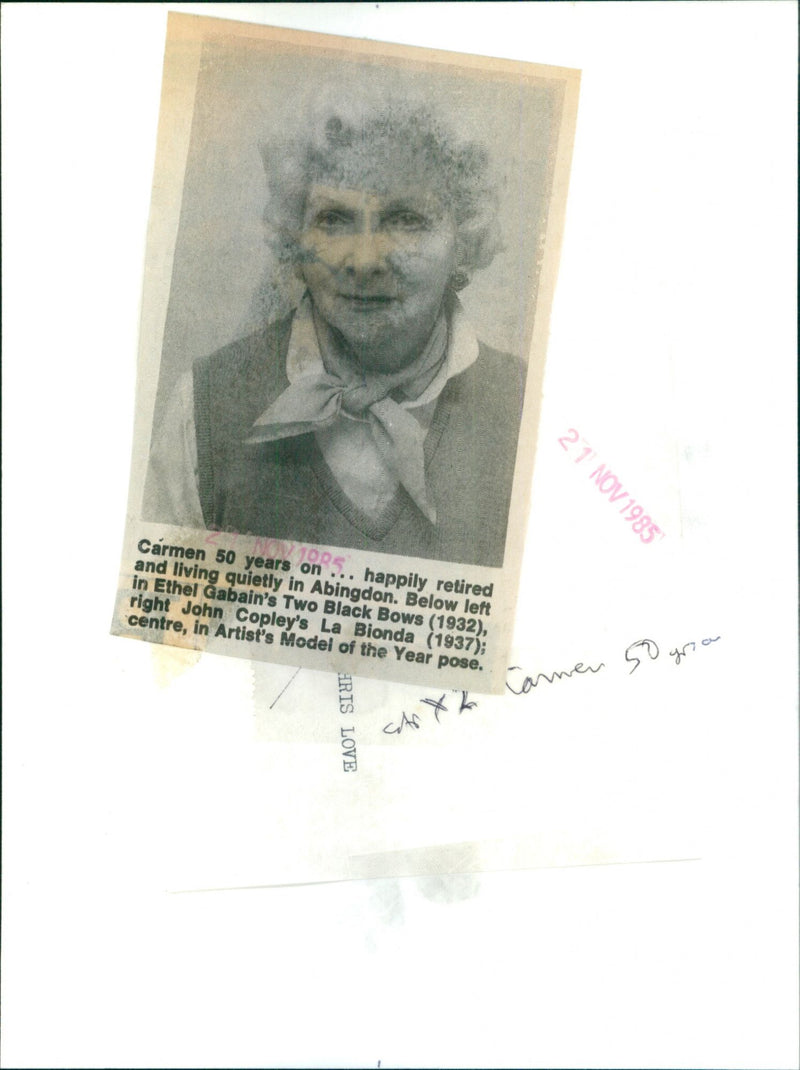 21 NOV 1985
21 NOV 1985
Carmen 50 years on ... happily retired
and living quietly in Abingdon. Below left
in Ethel Gabain's Two Black Bows (1932),
right John Copley's La Bionda (1937);
centre, in Artist's Model of the Year pose.
Carmen 50 yrs on
HRIS LOVE